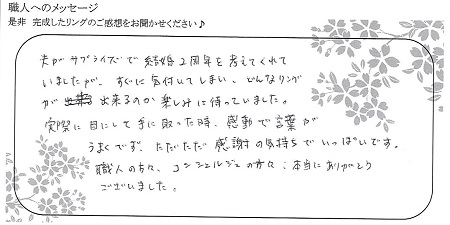 職人へのメッセージ
是非 完成したリングのご感想をお聞かせください♪
夫がサプライズで結婚2周年を考えてくれて
いましたが、すぐに気付いてしまい、どんなリング
が出来るのか楽しみに待っていました。
実際に目にして手に取った時、感動で言葉が
うまくでず、ただただ感謝の気持ちでいっぱいです。
職人の方々、コンシェルジュの方々、本当にありがとう
ございました。